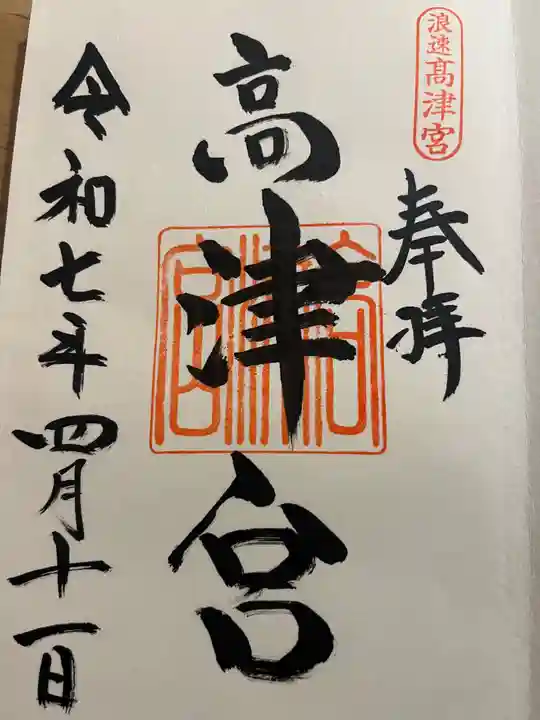 浪速高津宮
奉拝
高津宮
令和七年四月十一日